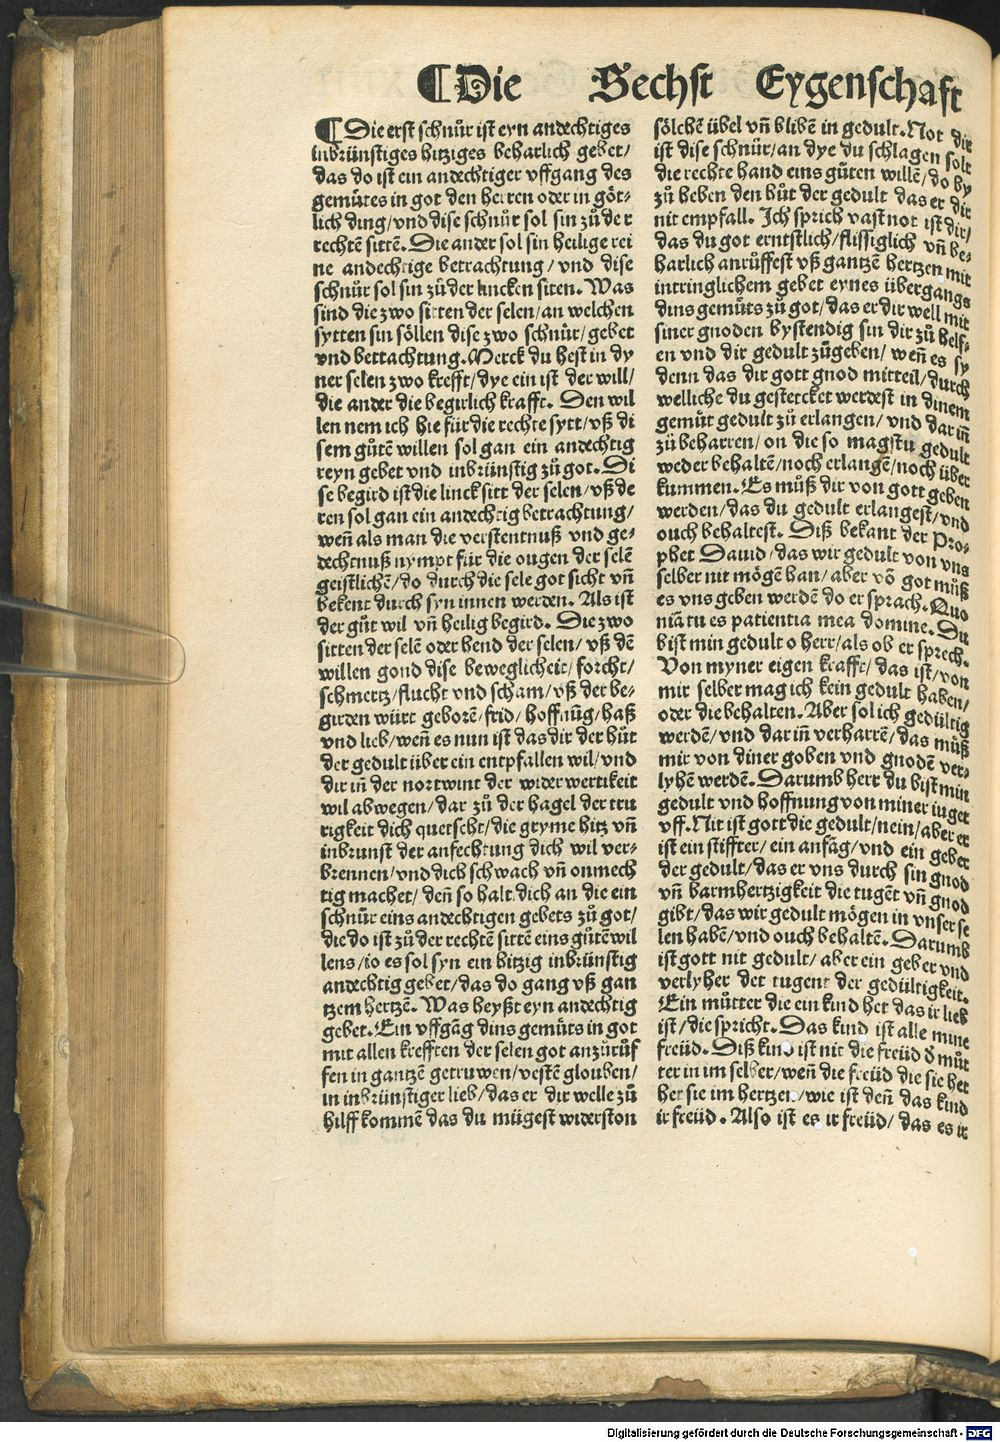 ¶ Die Sechst Eygenschaft
¶ Die erst schnůr ist eyn andechtiges
inbrünstiges hitziges beharlich gebet/
das do ist ein andechtiger vffgang des
gemůtes in got den herren oder in göt-
lich ding/vnd dise schnůr sol sin zů der
rechtē sittē. Die ander sol sin heilige rei
ne andechtige betrachtung/ vnd dise
schnůr sol sin zů der lincken siten. Was
sind die zwo sitten der selen/an welchen
sytten sin söllen dise zwo schnůr/gebet
vnd bettachtung. Merck du hest in dy
ner selen zwo krefft/dye ein ist der will/
die ander die begirlich krafft. Den wil
len nem ich hie für die rechte sytt/vß di
sem gůtē willen sol gan ein andechtig
reyn gebet vnd inbrünstig zů got. Di
se begird ist die linck sitt der selen/vß de
ren sol gan ein andechtig betrachtung/
weñ als man die verstentnuß vnd ge-
dechtnuß nympt für die ougen der selē
geistlichē/do durch die sele got sicht vñ
bekent durch syn innen werden. Als ist
der gůt wil vñ heilig begird. Die zwo
sitten der selē oder hend der selen/vß dē
willen gond dise beweglicheit/forcht/
schmertz/flucht vnd scham/vß der be-
girden würt geborē/frid/hoffnūg/haß
vnd lieb/weñ es nun ist das dir der hůt
der gedult über ein entpfallen wil/vnd
dir iñ der nortwint der widerwertikeit
wil abwegen/dar zů der hagel der tru
rigkeit dich quetscht/die gryme hitz vñ
inbrunst der anfechtung dich wil ver-
brennen/vnd dich schwach vñ onmech
tig machet/deñ so halt dich an die ein
schnůr eins andechtigen gebets zů got/
die do ist zů der rechtē sittē eins gůtē wil
lens/io es sol syn ein hitzig inbrünstig
andechtig gebet/das do gang vß gan
tzem hertzē. Was heyßt eyn andechtig
gebet. Ein vffgāg dins gemůts in got
mit allen krefften der selen got anzůrůf
fen in gantzē getruwen/vestē glouben/
in inbrünstiger lieb/das er dir welle zů
hilff kommē das du mügest widerston
sölchē übel vñ blibē in gedult. Not dir
ist dise schnůr/an dye du schlagen solt
die rechte hand eins gůten willē/do by
zů heben den hůt der gedult das er dir
nit empfall. Ich sprich vast not ist dir/
das du got erntstlich/flissiglich vñ be-
harlich anrůffest vß gantzē hertzen mit
intringlichem gebet eynes übergangs
dins gemůts zů got/das er dir well mit
siner gnoden bystendig sin dir zů helf-
en vnd dir gedult zůgeben/ weñ es sy
denn das dir gott gnod mitteil/durch
welliche du gestercket werdest in dinem
gemůt gedult zů erlangen/ vnd dar iñ
zů beharren/on die so magstu gedult
weder behaltē/noch erlangē/noch über
kummen. Es můß dir von gott geben
werden/das du gedult erlangest/vnd
ouch behaltest. Diß bekant der Pro-
phet Dauid/das wir gedult von vns
selber nit mögē han/aber vō got můß
es vns geben werdē do er sprach. Quo
niā tu es patientia mea domine. Du
bist min gedult o herr/als ob er sprech.
Von myner eigen krafft/das ist/von
mir selber mag ich kein gedult haben/
oder die behalten. Aber sol ich gedültig
werdē/vnd dar iñ verharrē/das můß
mir von diner goben vnd gnodē ver-
lyhē werdē. Darumb herr du bist min
gedult vnd hoffnung von miner iuget
vff. Nit ist gott die gedult/nein/aber er
ist ein stiffter/ein anfāg/vnd ein geber
der gedult/das er vns durch sin gnod
vñ barmhertzigkeit die tugēt vñ gnod
gibt/das wir gedult mögen in vnser se
len habē/vnd ouch behaltē. Darumb
ist gott nit gedult/ aber ein geber vnd
verlyher der tugent der gedültigkeit.
Ein můtter die ein kind het das ir lieb
ist/die spricht. Das kind ist alle mine
freüd. Diß kind ist nit die freüd d̄ můt
ter in im selber/weñ die freüd die sie het
het sie im hertzen/wie ist deñ das kind
ir freüd. Also ist es ir freüd/das es ir
Digitalisierung gefördert durch die Deutsche Forschungsgemeinschaft - DFG